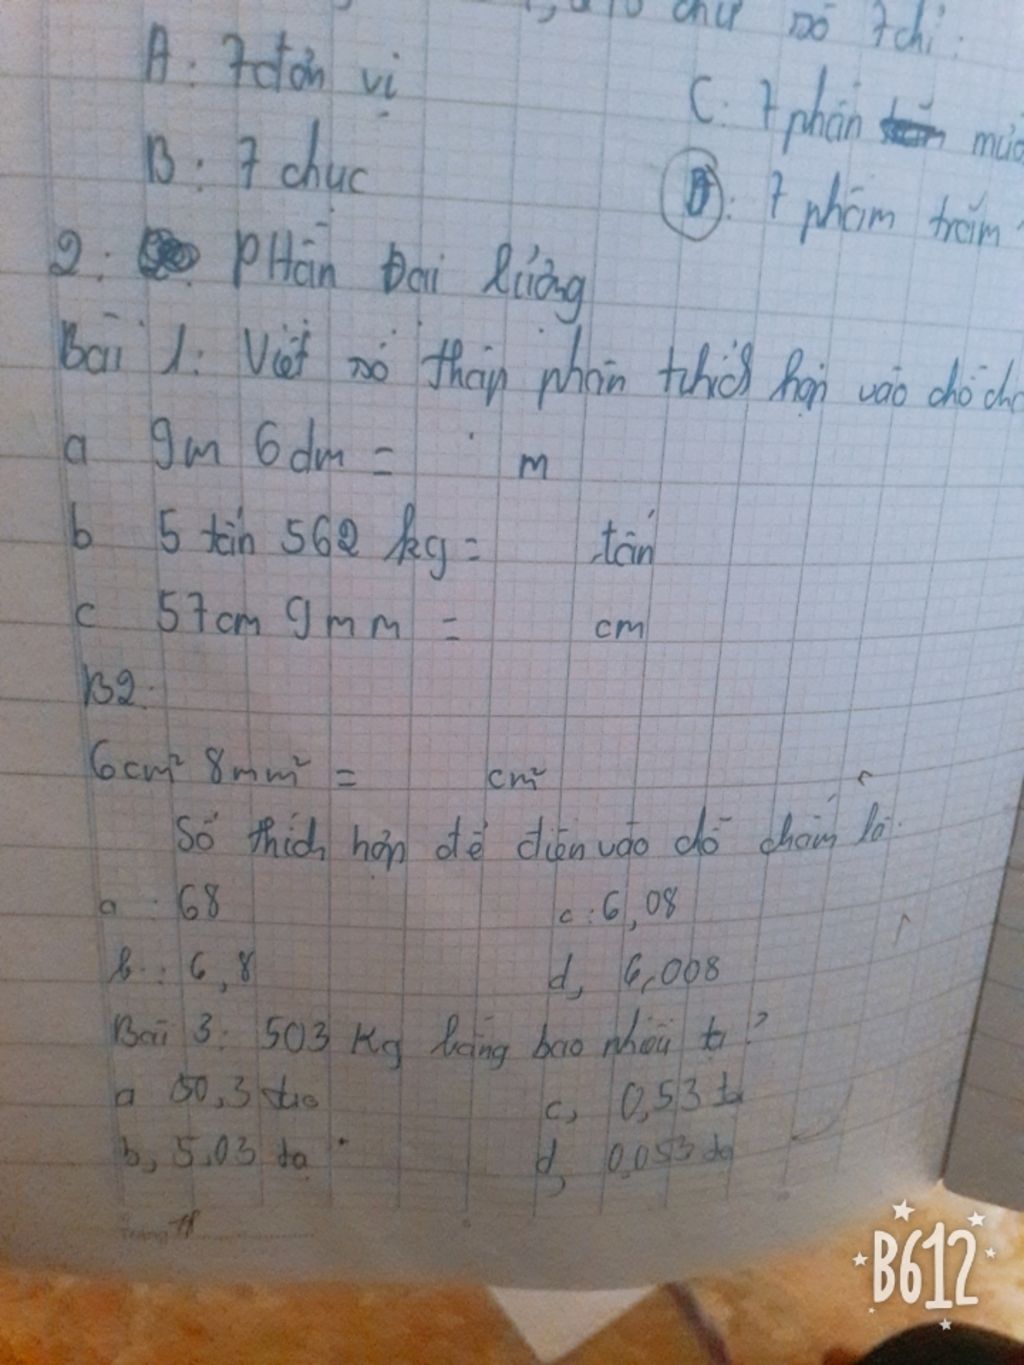 chữ số 7 chỉ:
A: 7 đơn vị
C: 7 phần
B: 7 chục
D: 7 phần trăm
2: Phần Đại lượng
Bài 1: Viết số thập phân thích hợp vào chỗ
a 9m 6dm = m
b 5 tấn 562 kg = tấn
c 57cm 9mm = cm
B2:
6cm² 8mm² = cm²
Số thích hợp để điền vào chỗ chấm là:
a: 68
c: 6,08
b: 6,8
d, 6,008
Bài 3: 503 Kg bằng bao nhiêu tạ?
a 50,3 tạ
c, 0,53 tạ
b, 5,03 tạ
d, 0,053 tạ
Trang 78
B612